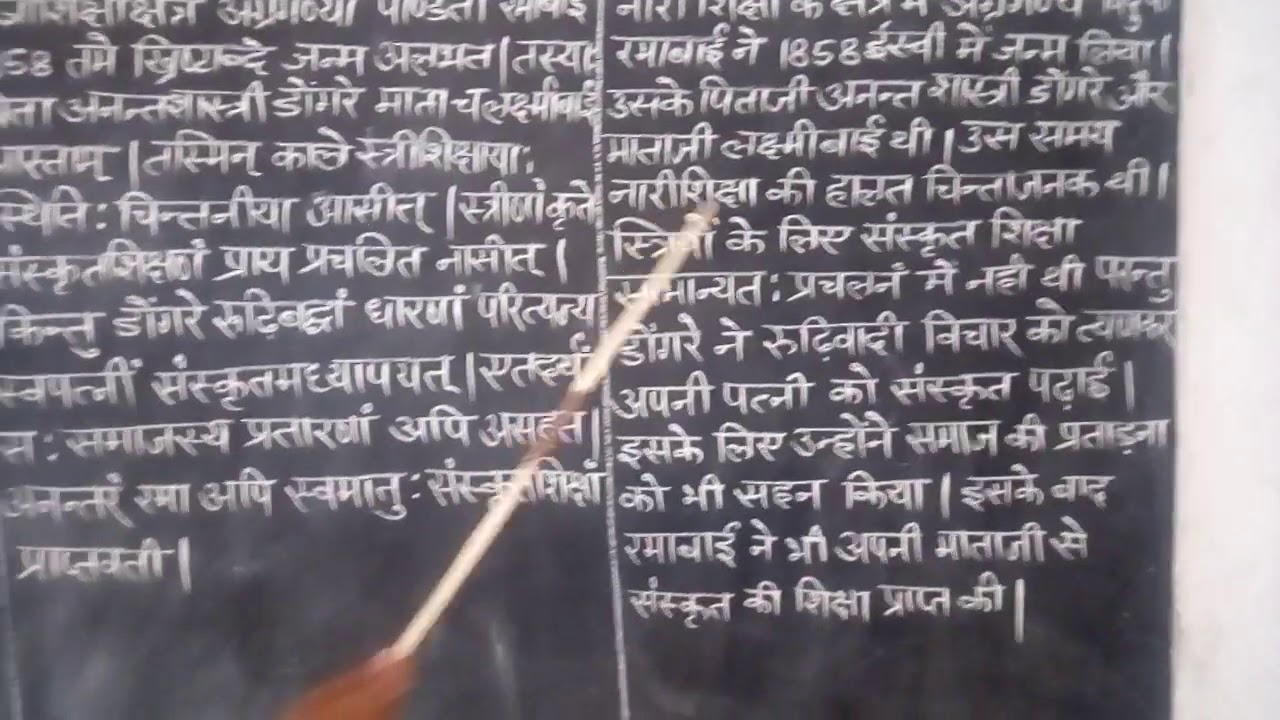 स्त्रीशिक्षाक्षेत्रे अग्रगण्या पण्डिता रमाबाई
58 तमे ख्रिष्टाब्दे जन्म अलभत | तस्याः
ता अनन्तशास्त्री डोंगरे माता च लक्ष्मीबाई
आस्ताम् | तस्मिन् काले स्त्रीशिक्षायाः
स्थितिः चिन्तनीया आसीत् | स्त्रीणां कृते
संस्कृतशिक्षणं प्राय प्रचलित नासीत् |
किन्तु डोंगरे रूढ़िबद्धां धारणां परित्यज्य
स्वपत्नीं संस्कृतमध्यापयत् | एतदर्थं
सः समाजस्य प्रतारणां अपि असहत |
अनन्तरं रमा अपि स्वमातुः संस्कृतशिक्षां
प्राप्तवती |
नारी शिक्षा के क्षेत्र में अग्रगण्य
रमाबाई ने 1858 ईस्वी में जन्म लिया |
उसके पिताजी अनन्त शास्त्री डोंगरे और
माताजी लक्ष्मीबाई थी | उस समय
नारीशिक्षा की हालत चिन्ताजनक थी |
स्त्रियों के लिए संस्कृत शिक्षा
सामान्यतः प्रचलनं में नही थी परन्तु
डोंगरे ने रुढ़िवादी विचार को त्यागकर
अपनी पत्नी को संस्कृत पढ़ाई |
इसके लिए उन्होंने समाज की प्रताड़ना
को भी सहन किया | इसके बाद
रमाबाई ने भी अपनी माताजी से
संस्कृत की शिक्षा प्राप्त की |